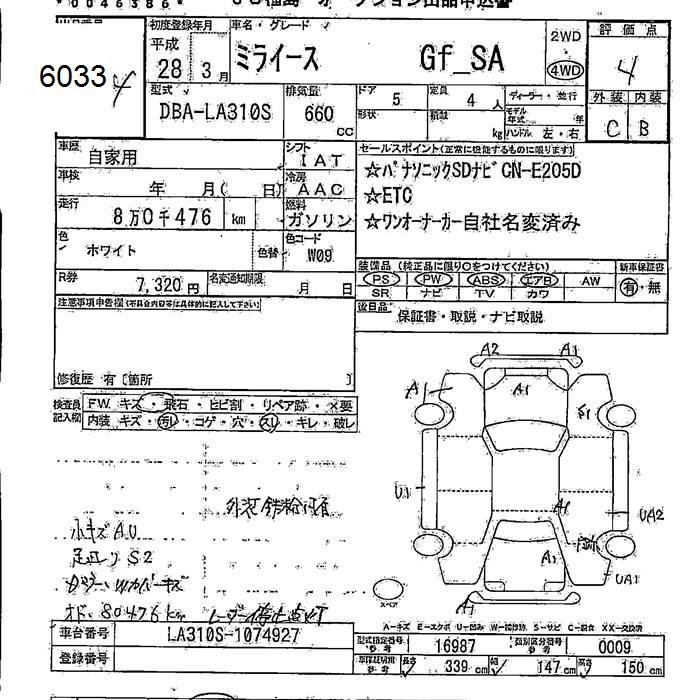 * 0046386 *
初度登録年月 車名・グレード
平成 28 3月 ミライース Gf_SA 2WD 4WD
評価点 4
6033
型式 DBA-LA310S
排気量 660 cc
ドア 5 定員 4 人 ディーラー・並行
形状 積載 kg モデル年式 年
ハンドル 左・右
外装 内装
C B
車歴 自家用
シフト IAT
車検 年 月( 日)
冷房 AAC
走行 8万0千476 km
燃料 ガソリン
色 ホワイト 色替
色コード W09
R券 7,320円 名変通知期限 月 日
セールスポイント(正常に機能するものに限ります)
☆パナソニックSDナビ CN-E205D
☆ETC
☆ワンオーナーカー自社名変済み
装備品 (純正品に限り○をつけてください) 新車保証書
PS PW ABS エアB AW 有・無
SR ナビ TV カワ
後日品 保証書・取説・ナビ取説
注意事項申告欄(不具合内容等は具体的に記入して下さい)
修復歴 有〔箇所 〕
検査員記入欄
FW キズ・飛石・ヒビ割・リペア跡・×要
内装 キズ・汚レ・コゲ・穴・スレ・キレ・破レ
外装鉄粉付着
小キズ AU
足回り S2
オド. 80476km
A2 A1
A1 A1 S1
U1 A1 UA2
A1 UA1
A1
スペア
A-キズ E-エクボ U-凹み W-補修跡 S-サビ C-腐食 XX-交換済
車台番号 LA310S-1074927
登録番号
型式指定番号 参考 16987 類別区分番号 参考 0009
車体証明用 参考 長さ 339 cm 幅 147 cm 高さ 150 cm